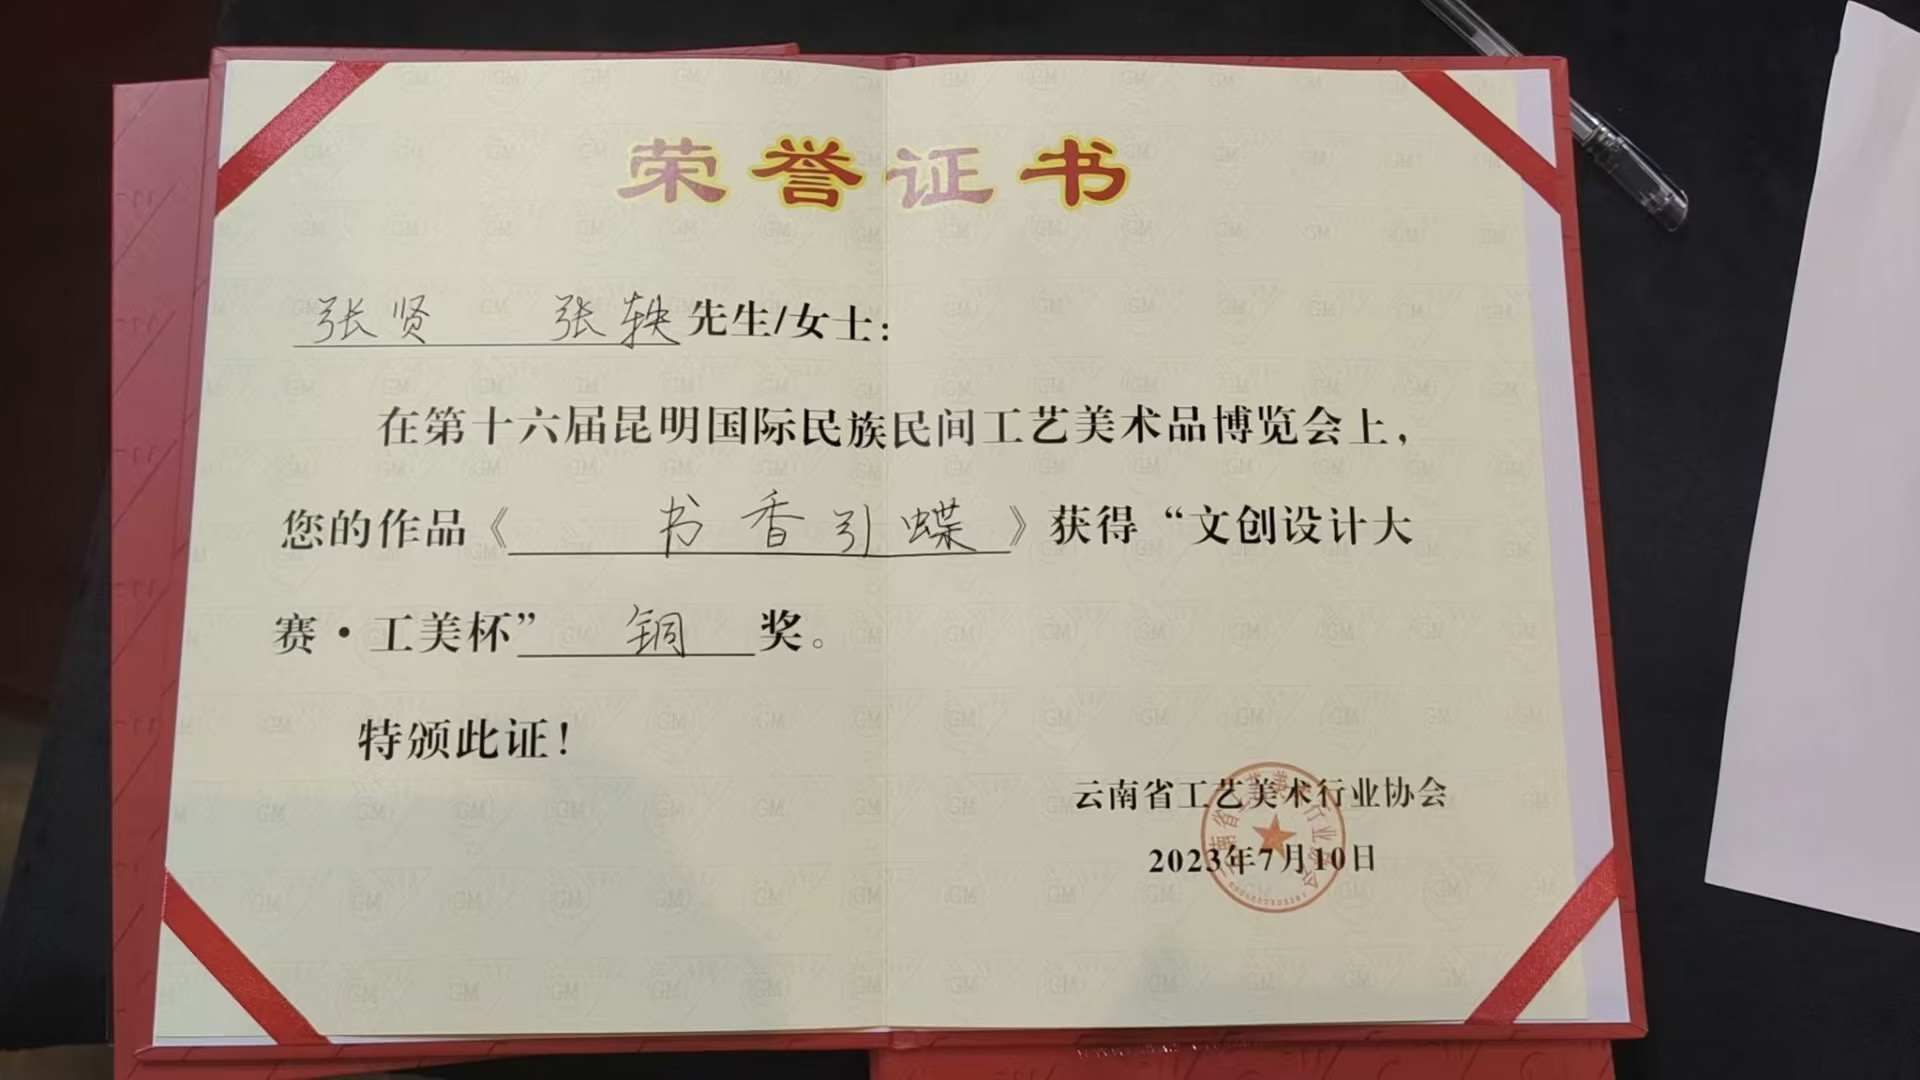 荣誉证书
张贤 张轶先生/女士：
在第十六届昆明国际民族民间工艺美术品博览会上，
您的作品《书香引蝶》获得“文创设计大
赛·工美杯”铜奖。
特颁此证！
云南省工艺美术行业协会
2023年7月10日